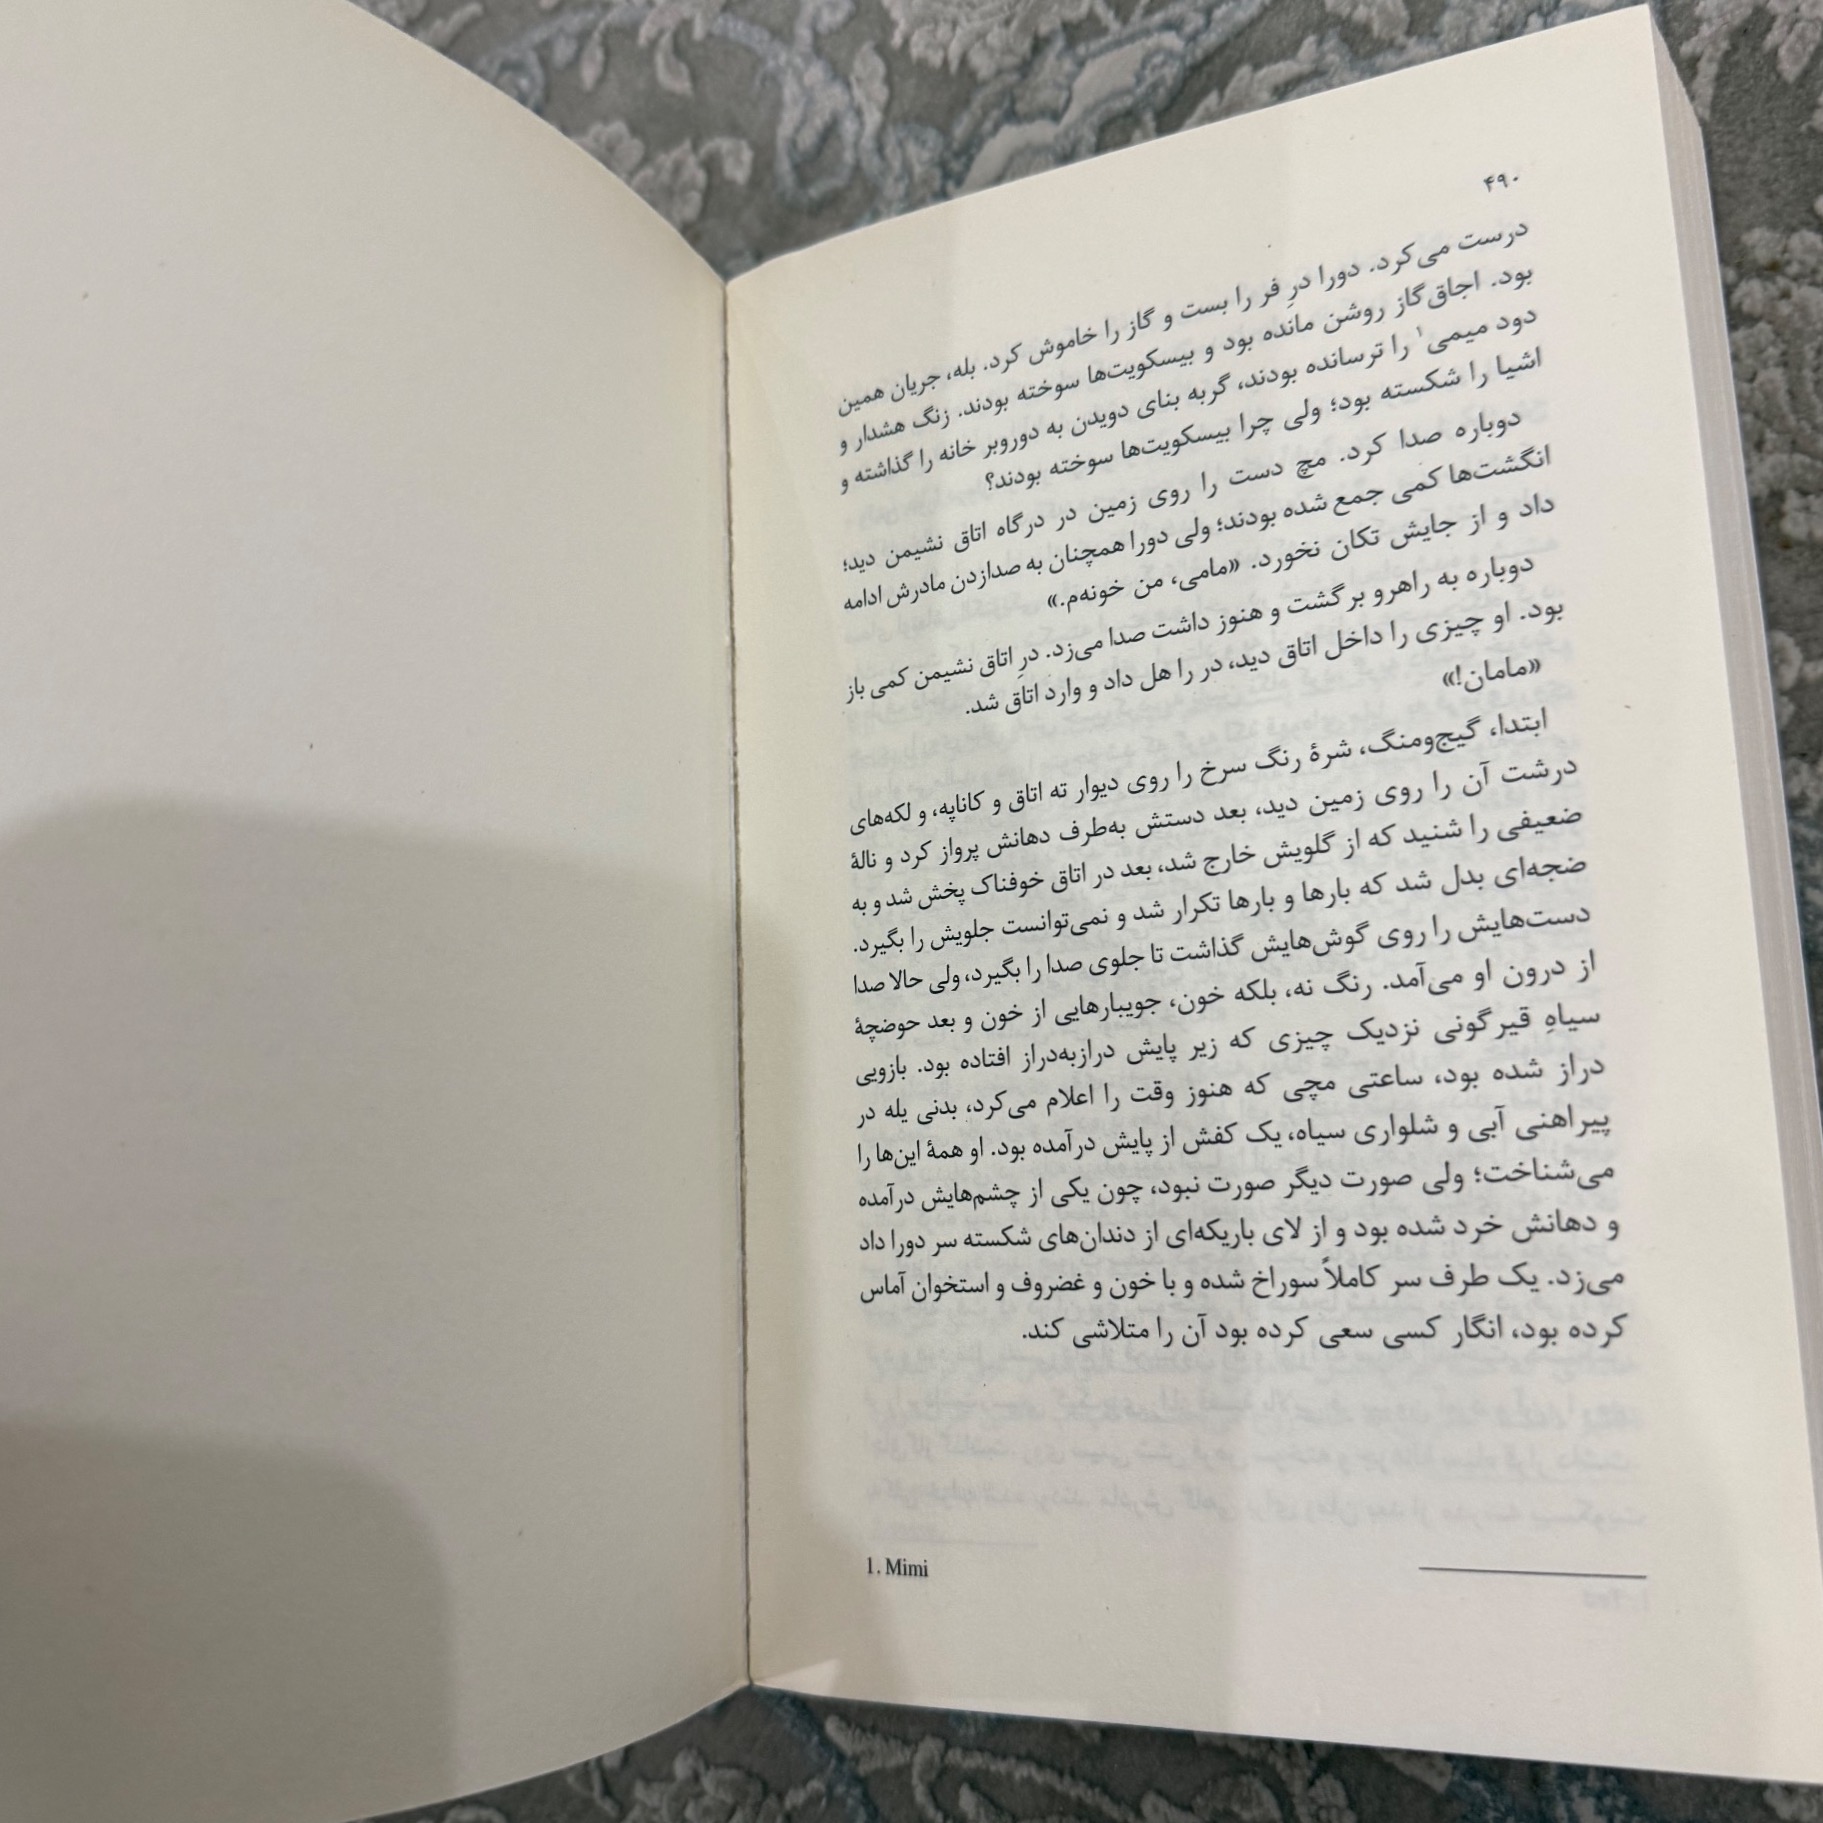 ۴۹۰
درست می‌کرد. دورا درِ فر را بست و گاز را خاموش کرد. بله، جریان همین
بود. اجاق‌گاز روشن مانده بود و بیسکویت‌ها سوخته بودند. زنگ هشدار و
دود میمی۱ را ترسانده بودند، گربه بنای دویدن به دوروبر خانه را گذاشته و
اشیا را شکسته بود؛ ولی چرا بیسکویت‌ها سوخته بودند؟
دوباره صدا کرد. مچ دست را روی زمین در درگاه اتاق نشیمن دید؛
انگشت‌ها کمی جمع شده بودند؛ ولی دورا همچنان به صدازدن مادرش ادامه
داد و از جایش تکان نخورد. «مامی، من خونه‌م.»
دوباره به راهرو برگشت و هنوز داشت صدا می‌زد. درِ اتاق نشیمن کمی باز
بود. او چیزی را داخل اتاق دید، در را هل داد و وارد اتاق شد.
«مامان!»
ابتدا، گیج‌ومنگ، شرهٔ رنگ سرخ را روی دیوار ته اتاق و کاناپه، و لکه‌های
درشت آن را روی زمین دید، بعد دستش به‌طرف دهانش پرواز کرد و نالهٔ
ضعیفی را شنید که از گلویش خارج شد، بعد در اتاق خوفناک پخش شد و به
ضجه‌ای بدل شد که بارها و بارها تکرار شد و نمی‌توانست جلویش را بگیرد.
دست‌هایش را روی گوش‌هایش گذاشت تا جلوی صدا را بگیرد، ولی حالا صدا
از درون او می‌آمد. رنگ نه، بلکه خون، جویبارهایی از خون و بعد حوضچهٔ
سیاهِ قیرگونی نزدیک چیزی که زیر پایش درازبه‌دراز افتاده بود. بازویی
دراز شده بود، ساعتی مچی که هنوز وقت را اعلام می‌کرد، بدنی یله در
پیراهنی آبی و شلواری سیاه، یک کفش از پایش درآمده بود. او همهٔ این‌ها را
می‌شناخت؛ ولی صورت دیگر صورت نبود، چون یکی از چشم‌هایش درآمده
و دهانش خرد شده بود و از لای باریکه‌ای از دندان‌های شکسته سر دورا داد
می‌زد. یک طرف سر کاملاً سوراخ شده و با خون و غضروف و استخوان آماس
کرده بود، انگار کسی سعی کرده بود آن را متلاشی کند.
1. Mimi